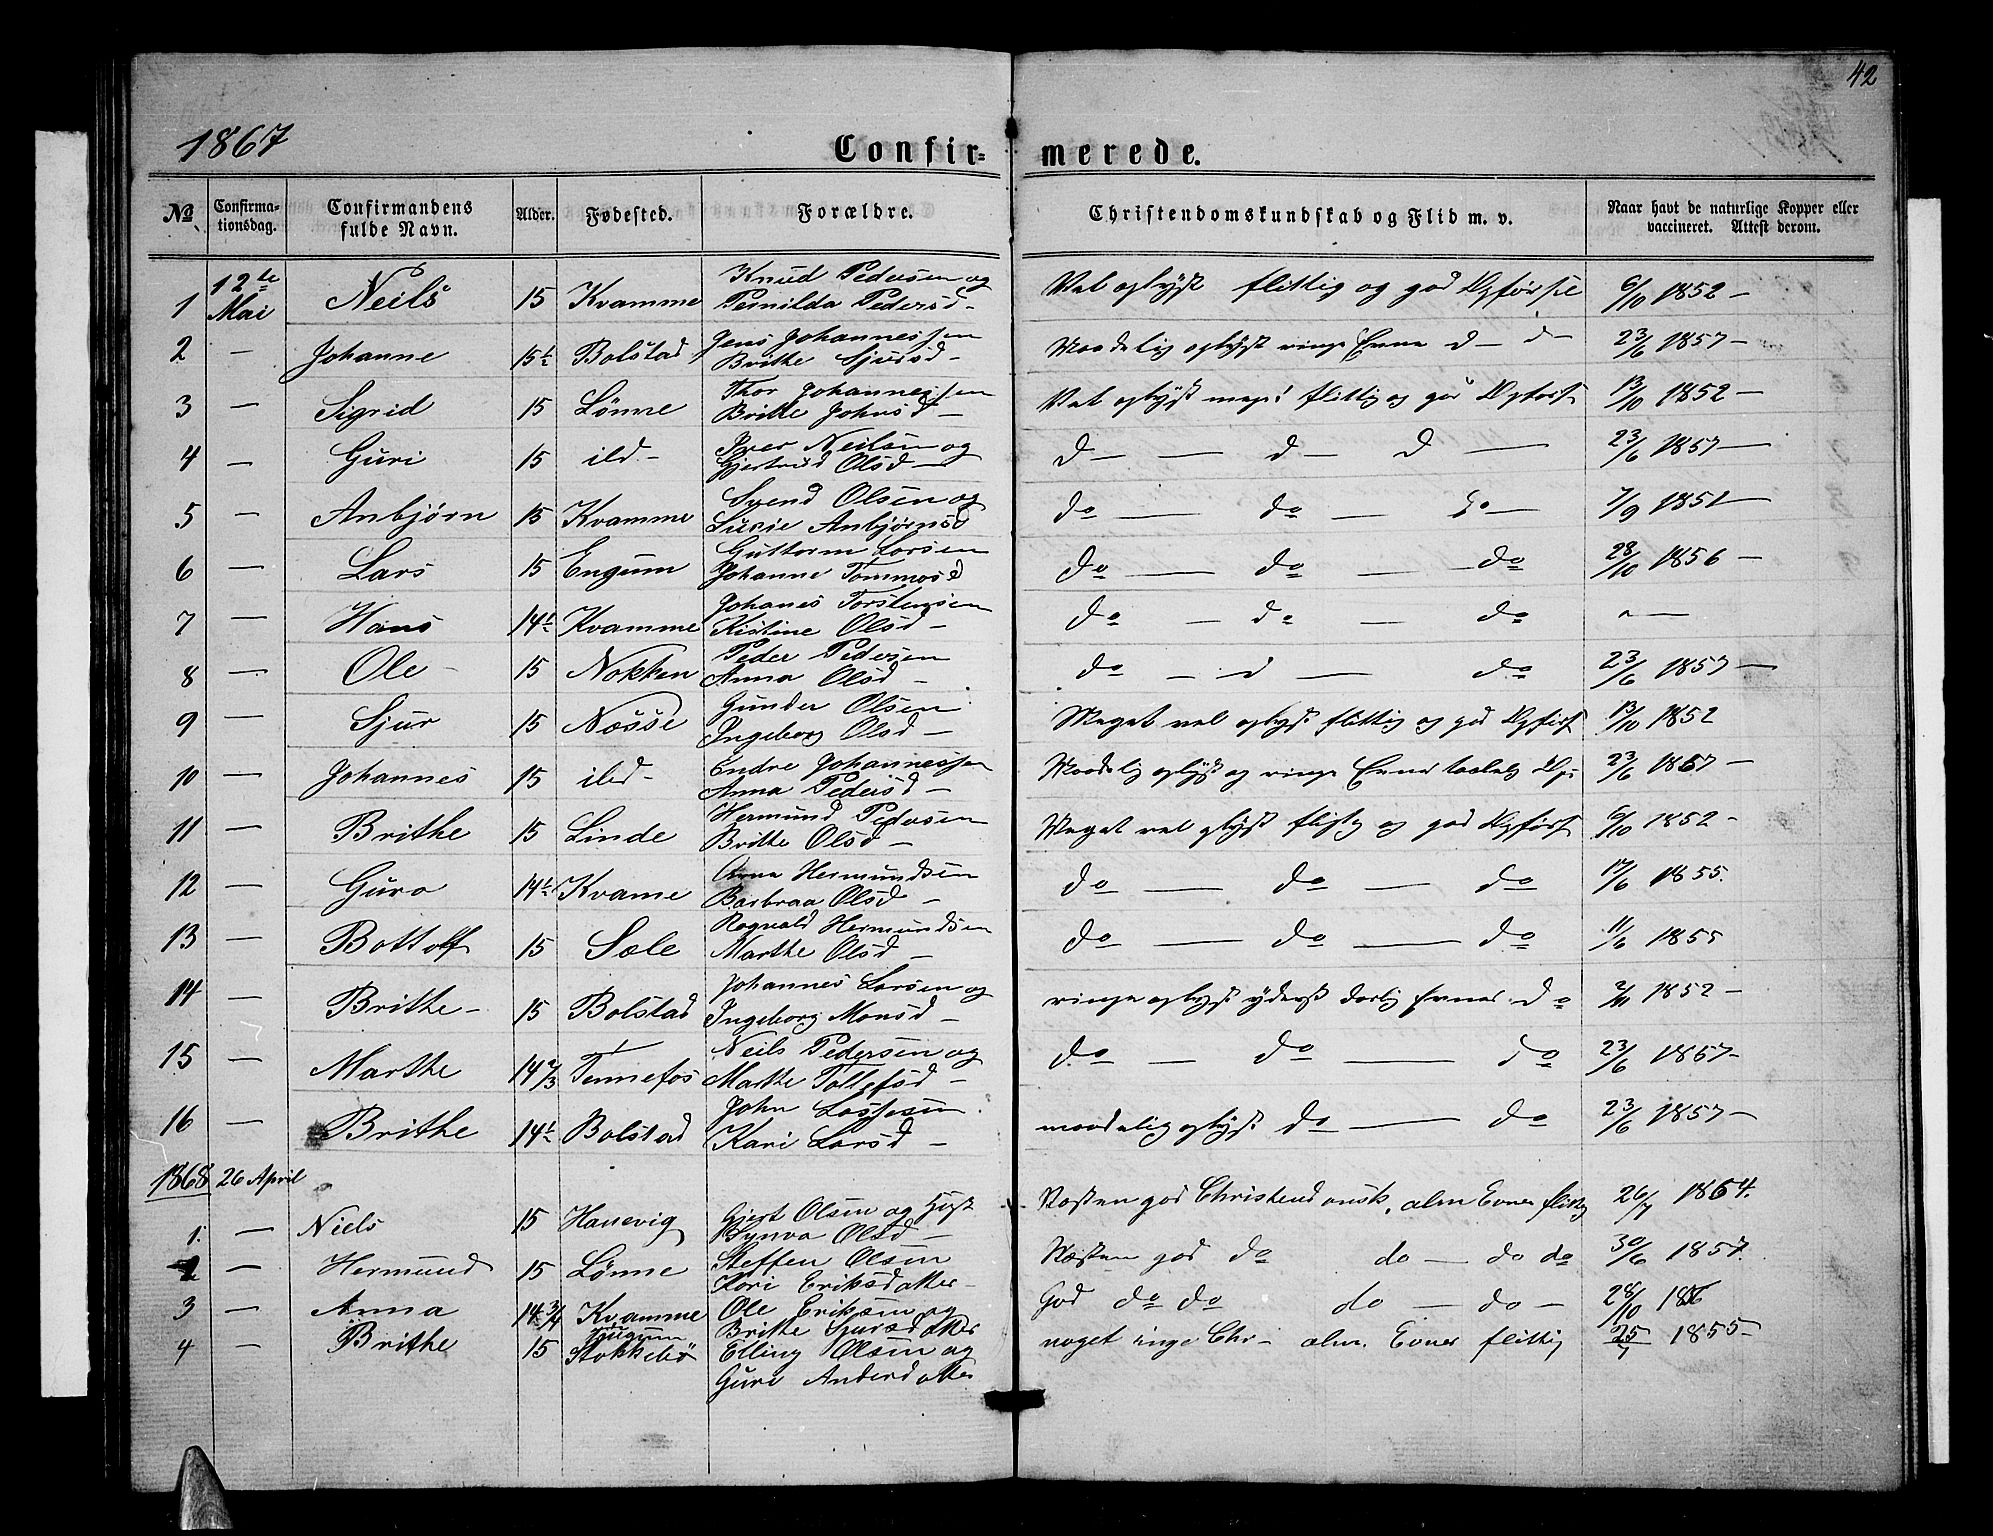 42
1867 Confir= merede.
No Confirma-tionsdag. Confirmandens fulde Navn. Alder. Fødested. Forældre. Christendomskundskab og Flid m. v. Naar havt de naturlige Kopper eller vaccineret. Attest derom.
1 12te Mai Neils 15 Kvamme Knud Pedersen og Pernilda Pedersd- Vel oplyst flittig og god Opførsel 6/10 1852 -
2 - Johanne 15½ Bolstad Jens Johannessen Brithe Sjursd - Maadelig oplyst ringe Evne d - d - 23/6 1857 -
3 - Sigrid 15 Lønne Thor Johannessen Brithe Johnsd - Vel oplyst flittig og god Opførs 13/10 1852 -
4 - Guri 15 ild - Iver Neilsen og Gjertrud Olsd - d - - d - d - 23/6 1857 -
5 - Anbjørn 15 Kvamme Svend Olsen og Anbjørnsd do - do - do - 7/9 1851 -
6 - Lars 15 Engum Guttorm Larsen Johanne Tommasd do - do - do 28/10 1856 -
7 - Hans 14½ Kvamme Johanes Torstensen Kistine Olsd - do - do - do " -
8 - Ole - 15 Nokken Peder Pedersen Anna Olsd - do - d - do 23/6 1857 -
9 - Sjur 15 Nøsse Gunder Olsen Ingeborg Olsd - Meget vel oplyst flittig og god Opførs 13/10 1852
10 - Johannes 15 ild - Endre Johannessen Anna Pedersd - Maadelig oplyst og ringe Evner 23/6 1857 -
11 - Brithe 15 Linde Hermund Pedersen Brithe Olsd - Meget vel oplyst flittig og god Opførs 6/10 1852 -
12 - Guro 14½ Kvame Hermundsen Barbraa Olsd - do - do - do 17/6 1855.
13 - Bottolf 15 Sæle Rognald Hermundsen Marthe Olsd - do - do - do 11/6 1855
14 - Brithe - 15 Bolstad Johannes Larsen og Ingeborg Monsd - ringe oplyst yderst daarlig Evner do 2/11 1852 -
15 - Marthe 14 2/3 Tennefos Neils Pedersen og Marthe Tollefsd - do - do - do 23/6 1857 -
16 - Brithe 14½ Bolstad John Lassesen Kari Larsd - maadelig oplyst do - do 23/6 1857 -
1868 26 April
1. - Niels 15 Hanevig Gjert Olsen og Synva Olsd - Næsten god Christendomsk, alm Evner flittig 26/7 1864.
2 - Hermund 15 Lønne Steffen Olsen Kari Eriksdatter - Næsten god do do - do do 30/6 1857.
3 - Anna 14 3/4 Kvamme Ole Eriksen og Brithe Sjursdatter God do do do - do - 28/10 1856
4 - Brithe 15 Engum Stokkebø Elling Olsen og Guri Andersdatter noget ringe Chr - alm. Evner flittig 25/7 1855 -